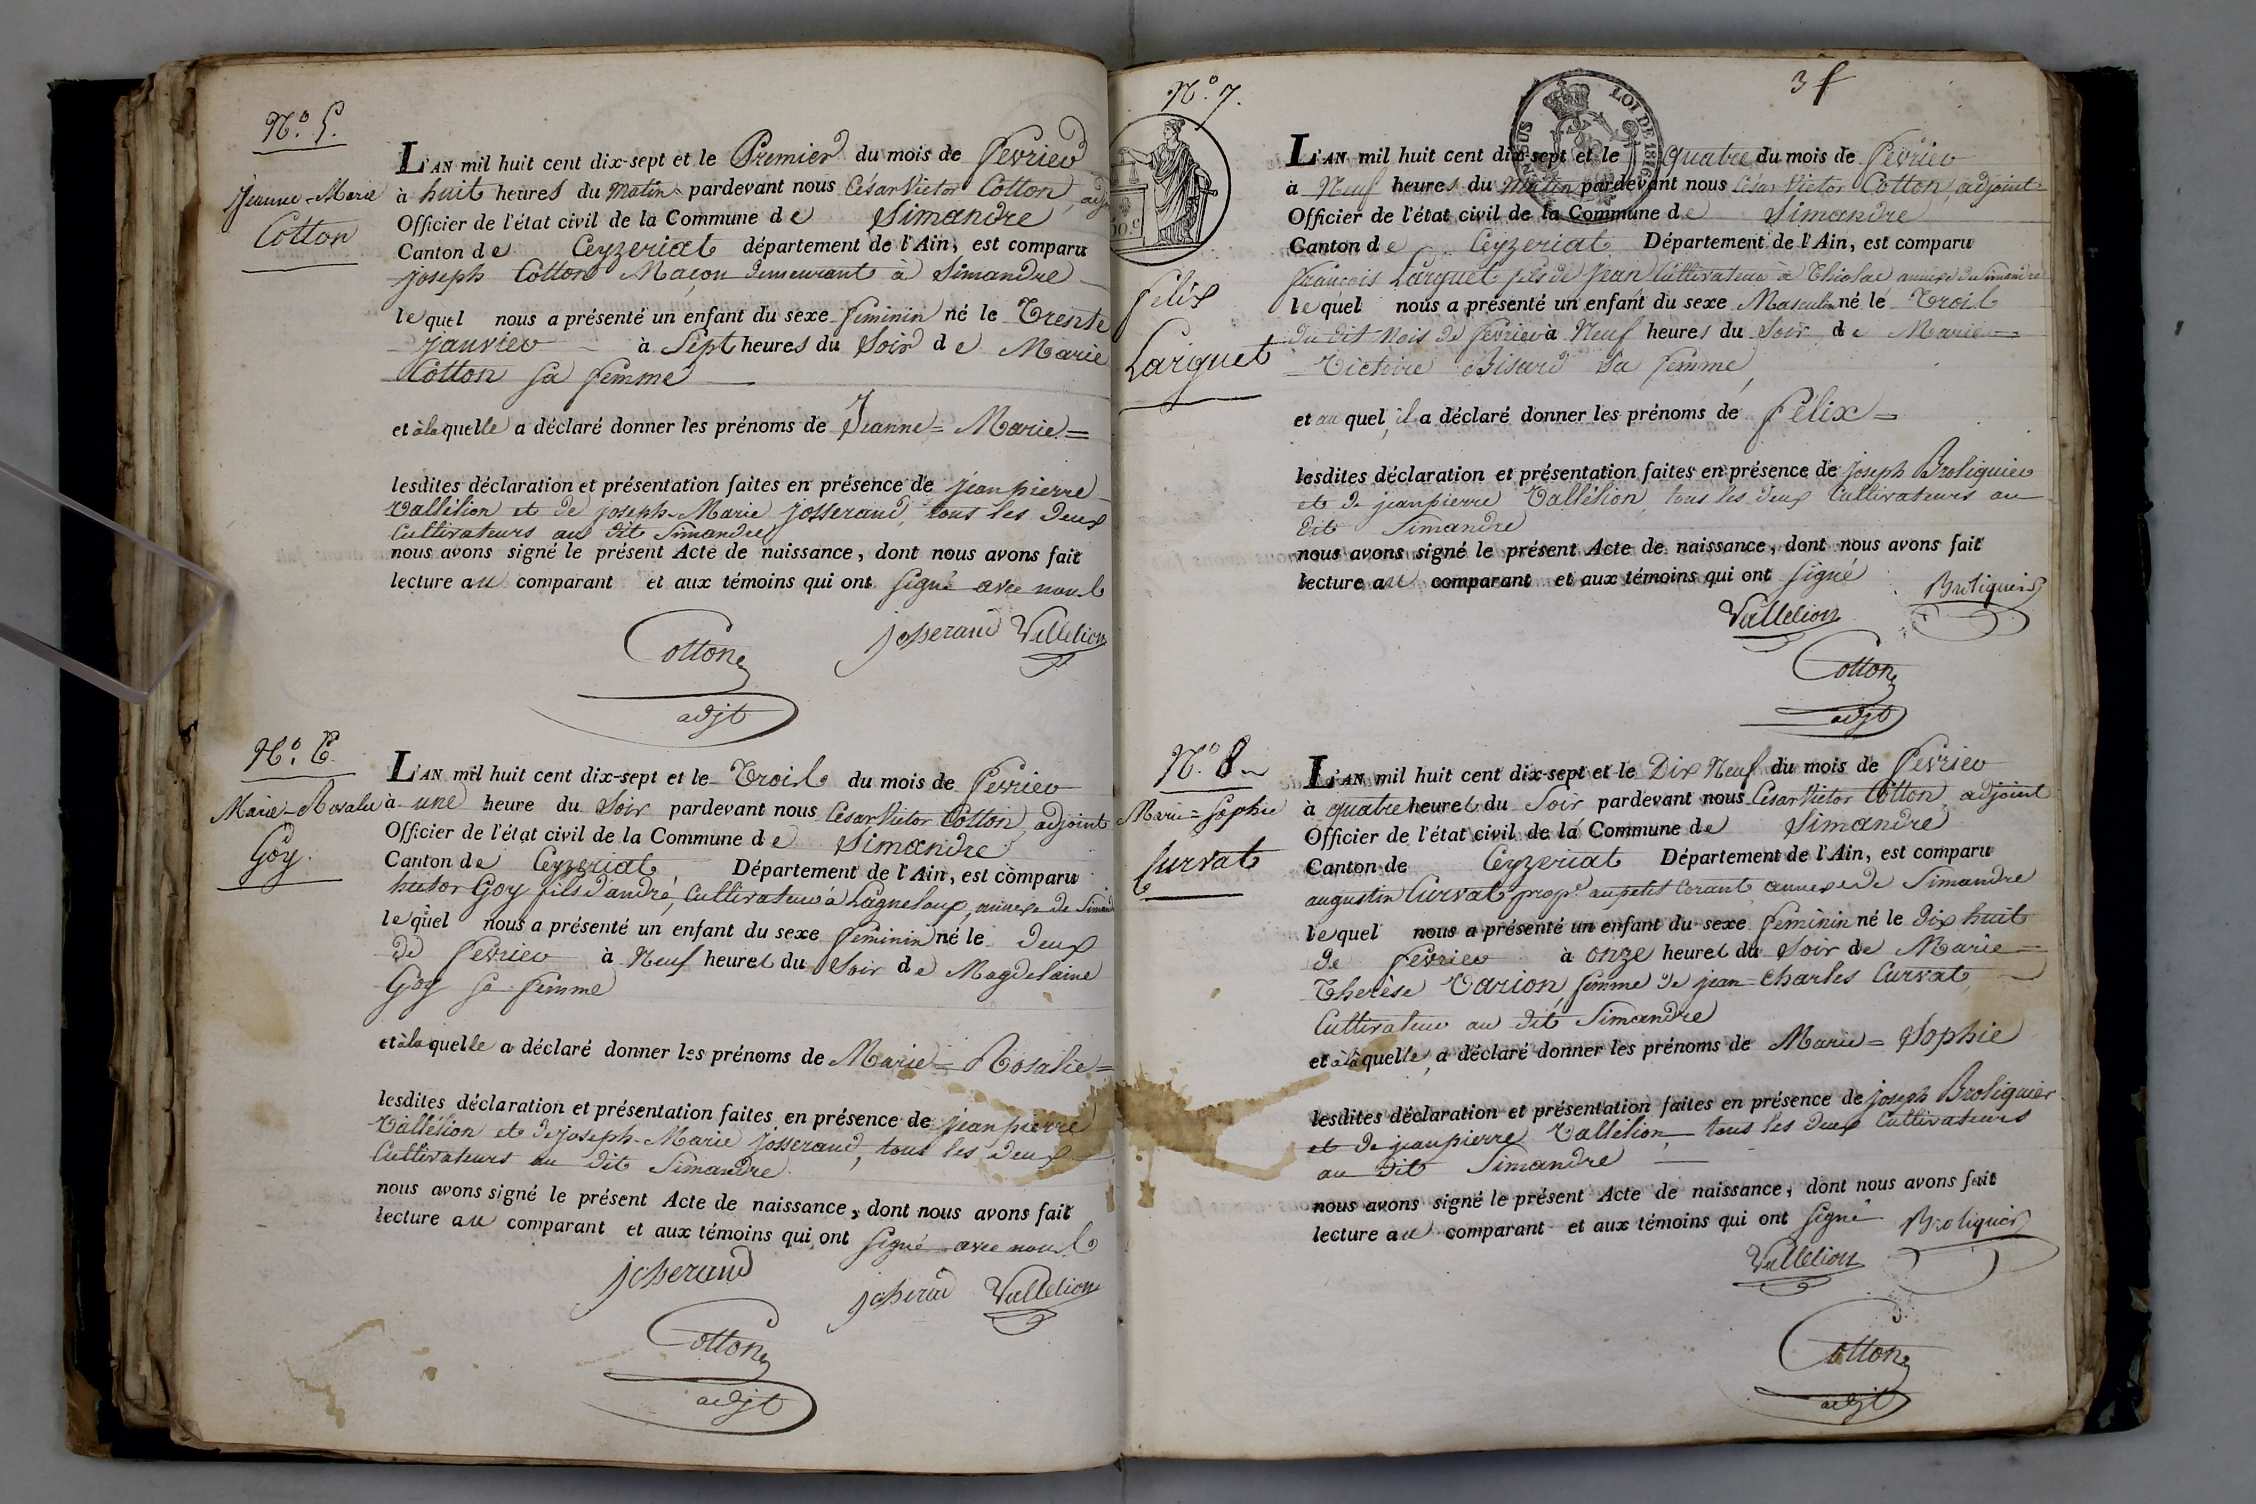 N.° 5.
Jeanne-Marie
Cotton
L'AN mil huit cent dix-sept et le Premier du mois de fevrier
à huit heures du matin pardevant nous César Victor Cotton, adj
Officier de l'état civil de la Commune de Simandre
Canton de Ceyzeriat département de l'Ain, est comparu
joseph Cotton Maçon demeurant à Simandre
lequel nous a présenté un enfant du sexe feminin né le Trente
janvier à Sept heures du Soir de Marie
Cotton sa femme
et à laquelle a déclaré donner les prénoms de Jeanne = Marie =
lesdites déclaration et présentation faites en présence de jean pierre
Vallélion et de joseph-Marie josserand, tous les deux
Cultivateurs au dit Simandre
nous avons signé le présent Acte de naissance, dont nous avons fait
lecture au comparant et aux témoins qui ont signé avec nous
josserand Vallelion
Cotton
adjt
N.° 6.
Marie-Rosalie
Goy.
L'AN mil huit cent dix-sept et le Trois du mois de fevrier
à une heure du Soir pardevant nous César Victor Cotton, adjoint
Officier de l'état civil de la Commune de Simandre
Canton de Ceyzeriat, Département de l'Ain, est comparu
hector Goy fils d'andré, Cultivateur à Lagneloup, annexe de Simand
lequel nous a présenté un enfant du sexe feminin né le deux
de fevrier à Neuf heures du Soir de Magdelaine
Goy sa femme
et à laquelle a déclaré donner les prénoms de Marie = Rosalie =
lesdites déclaration et présentation faites en présence de jean pierre
Vallélion et de joseph-Marie josserand, tous les deux
Cultivateurs au dit Simandre.
nous avons signé le présent Acte de naissance, dont nous avons fait
lecture au comparant et aux témoins qui ont signé avec nous
josserand
josserand Vallelion
Cotton
adjt
3 f
LOI DE 1816
N.° 7.
felix
Larguet
L'AN mil huit cent dix-sept et le quatre du mois de fevrier
à Neuf heures du Matin pardevant nous César Victor Cotton, adjoint
Officier de l'état civil de la Commune de Simandre
Canton de Ceyzeriat Département de l'Ain, est comparu
françois Larguet fils de Jean Cultivateur à Thiolac annexe de Simandre
lequel nous a présenté un enfant du sexe Masculin né le Trois
du dit Mois de fevrier à Neuf heures du Soir de Marie =
Victoire Bisard Sa femme,
et au quel, il a déclaré donner les prénoms de félix =
lesdites déclaration et présentation faites en présence de joseph Broliquier
et de jean pierre Vallélion, tous les deux Cultivateurs au
dit Simandre
nous avons signé le présent Acte de naissance, dont nous avons fait
lecture au comparant et aux témoins qui ont signé
Broliquier
Vallelion
Cotton
adjt
N.° 8
Marie = Sophie
Curvat
L'AN mil huit cent dix-sept et le Dix Neuf du mois de fevrier
à quatre heures du Soir pardevant nous César Victor Cotton, adjoint
Officier de l'état civil de la Commune de Simandre
Canton de Ceyzeriat Département de l'Ain, est comparu
augustin Curvat prop.e au petit Corant, annexe de Simandre
lequel nous a présenté un enfant du sexe feminin né le dix huit
de fevrier à onze heures du Soir de Marie
Therèse Varion, femme de jean Charles Curvat,
Cultivateur au dit Simandre
et à laquelle, a déclaré donner les prénoms de Marie = Sophie
lesdites déclaration et présentation faites en présence de joseph Broliquier
et de jean pierre Vallélion, tous les deux Cultivateurs
au dit Simandre
nous avons signé le présent Acte de naissance, dont nous avons fait
lecture au comparant et aux témoins qui ont signé
Broliquier
Vallelion
Cotton
adjt